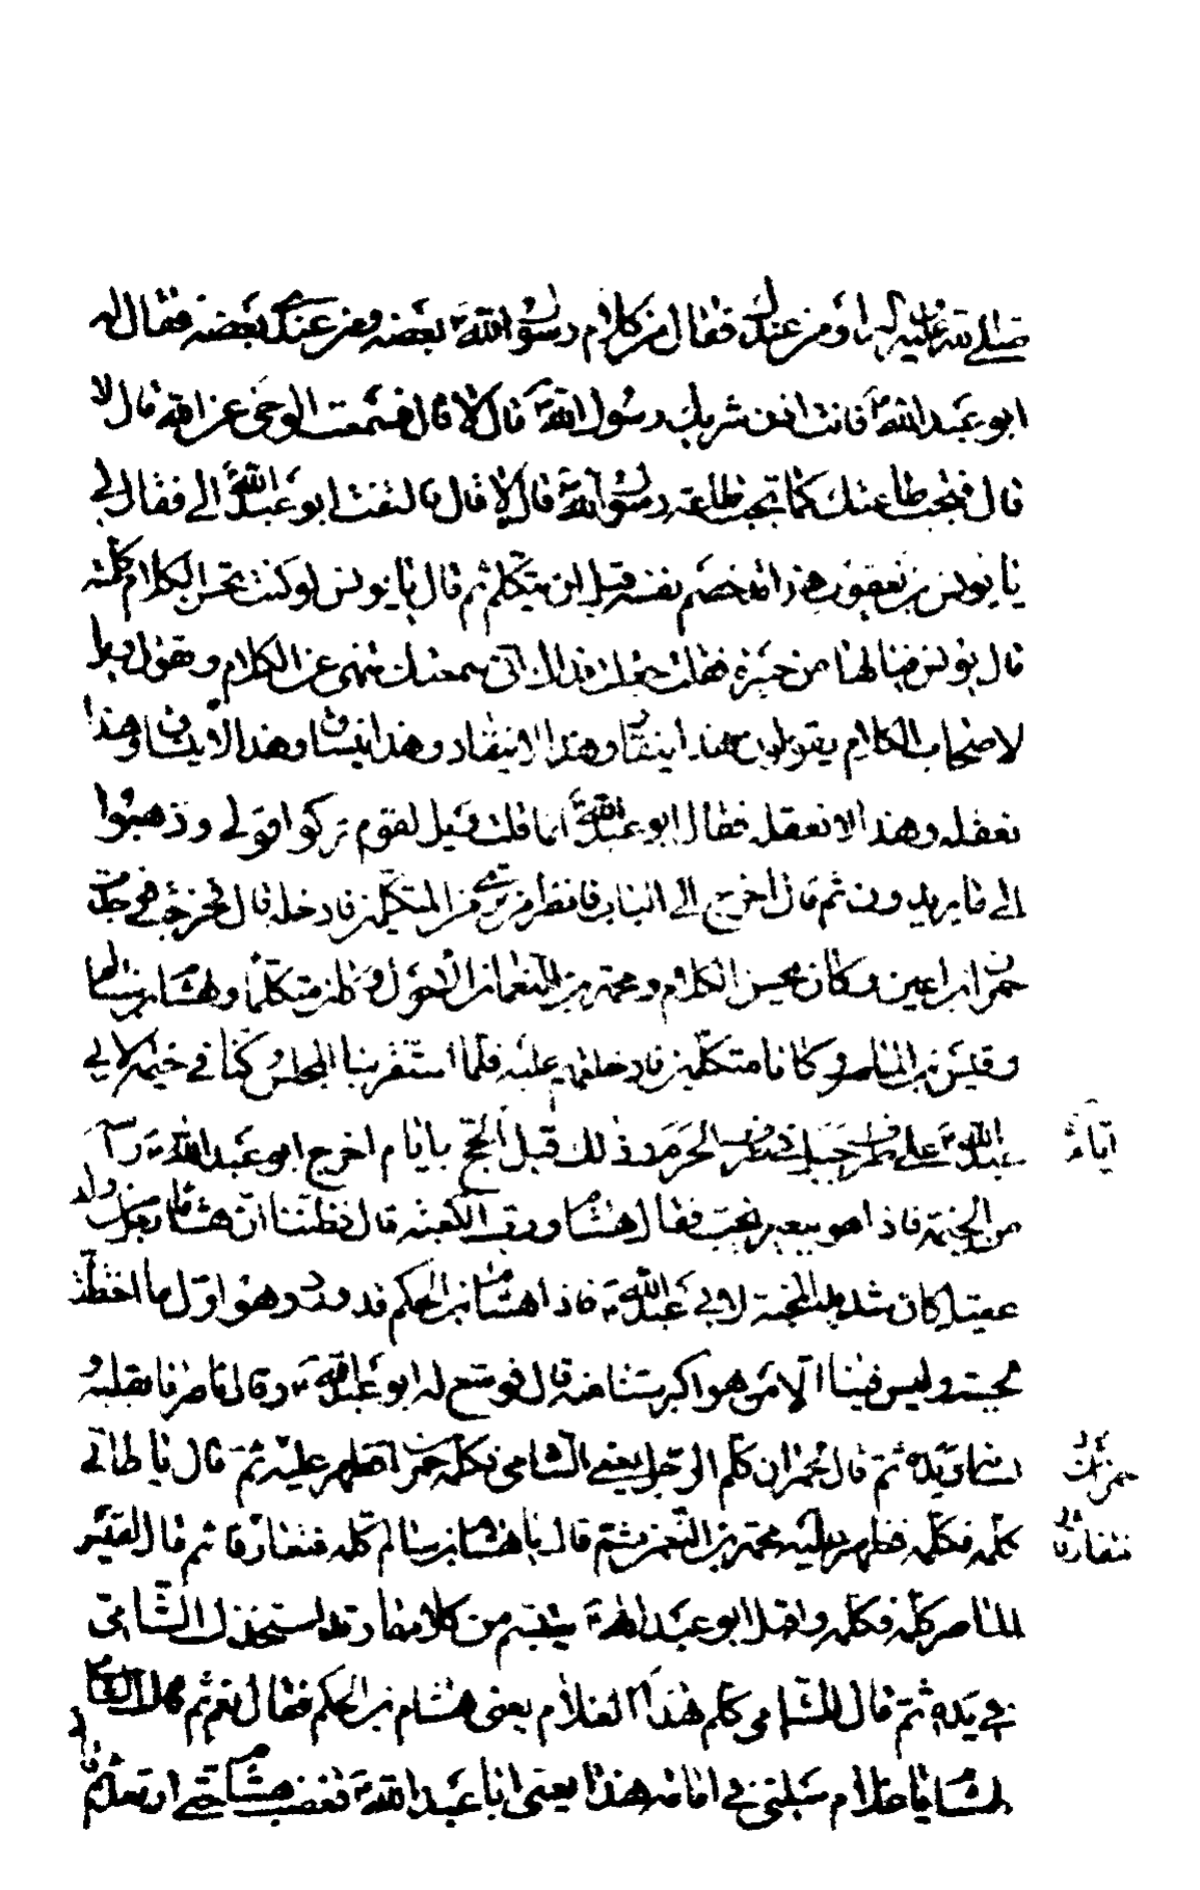 صلى الله عليه وآله او من عندك فقال من كلام رسول الله بعضه ومن عندك بعضه فقال له
ابو عبد الله فانت اذن شريك رسول الله قال لا قال فسمعت الوحى عن الله قال لا
قال فتجب طاعتك كما تجب طاعة رسول الله قال لا قال فالتفت ابو عبد الله الى فقال لى
يا يونس بن يعقوب هذا قد خصم نفسه قبل ان يتكلم ثم قال يا يونس لو كنت تحسن الكلام كلمته
قال يونس فيالها من حسرة فقلت جعلت فداك انى سمعتك تنهى عن الكلام وتقول ويل
لاصحاب الكلام يقولون هذا ينقاد وهذا لا ينقاد وهذا ينساق وهذا لا ينساق وهذا
نعقله وهذا لا نعقله فقال ابو عبد الله انما قلت فويل لقوم تركوا قولى وذهبوا
الى ما يريدون ثم قال اخرج الى الباب فانظر من ترى من المتكلمين فادخله قال فخرجت فوجدت
حمران بن اعين وكان يحسن الكلام ومحمد بن النعمان الاحول وكان متكلما وهشام بن سالم
وقيس بن الماصر وكانا متكلمين فادخلتهم عليه فلما استقر بنا المجلس وكنا فى خيمة لابى
عبد الله على طرف جبل فى طرف الحرم وذلك قبل الحج بايام اخرج ابو عبد الله رأسه
اياما
من الخيمة فاذا هو ببعير يخب فقال هشام ورب الكعبة قال فظننا ان هشاما رجل من ولد
عقيل كان شديد المحبة لابى عبد الله فاذا هشام بن الحكم قد ورد وهو اول ما اختطت
لحيته وليس فينا الا من هو اكبر سنا منه قال فوسع له ابو عبد الله وقال ناصرنا بقلبه و
لسانه ويده ثم قال لحمران كلم الرجل يعنى الشامى فكلمه حمران فظهر عليه ثم قال يا طاقى
حمران
كلمه فكلمه فظهر عليه محمد بن النعمن ثم قال يا هشام بن سالم كلمه فتعارفا ثم قال لقيس
فتعارفا
الماصر كلمه فكلمه واقبل ابو عبد الله يتبسم من كلامهما وقد استخذل الشامى
فى يده ثم قال للشامى كلم هذا الغلام يعنى هشام بن الحكم فقال نعم ثم قال الشامى
لهشام يا غلام سلنى فى امامة هذا يعنى ابا عبد الله فغضب هشام حتى ارتعد ثم قال